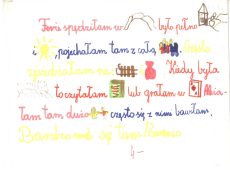 Ferie spędziłam w było pełno
i , pojechałam tam z całą
zjeżdżałam na Kiedy była
to czytałam lub grałam w Mia-
łam tam dużo często się z nimi bawiłam.
Bardzo mi się tam